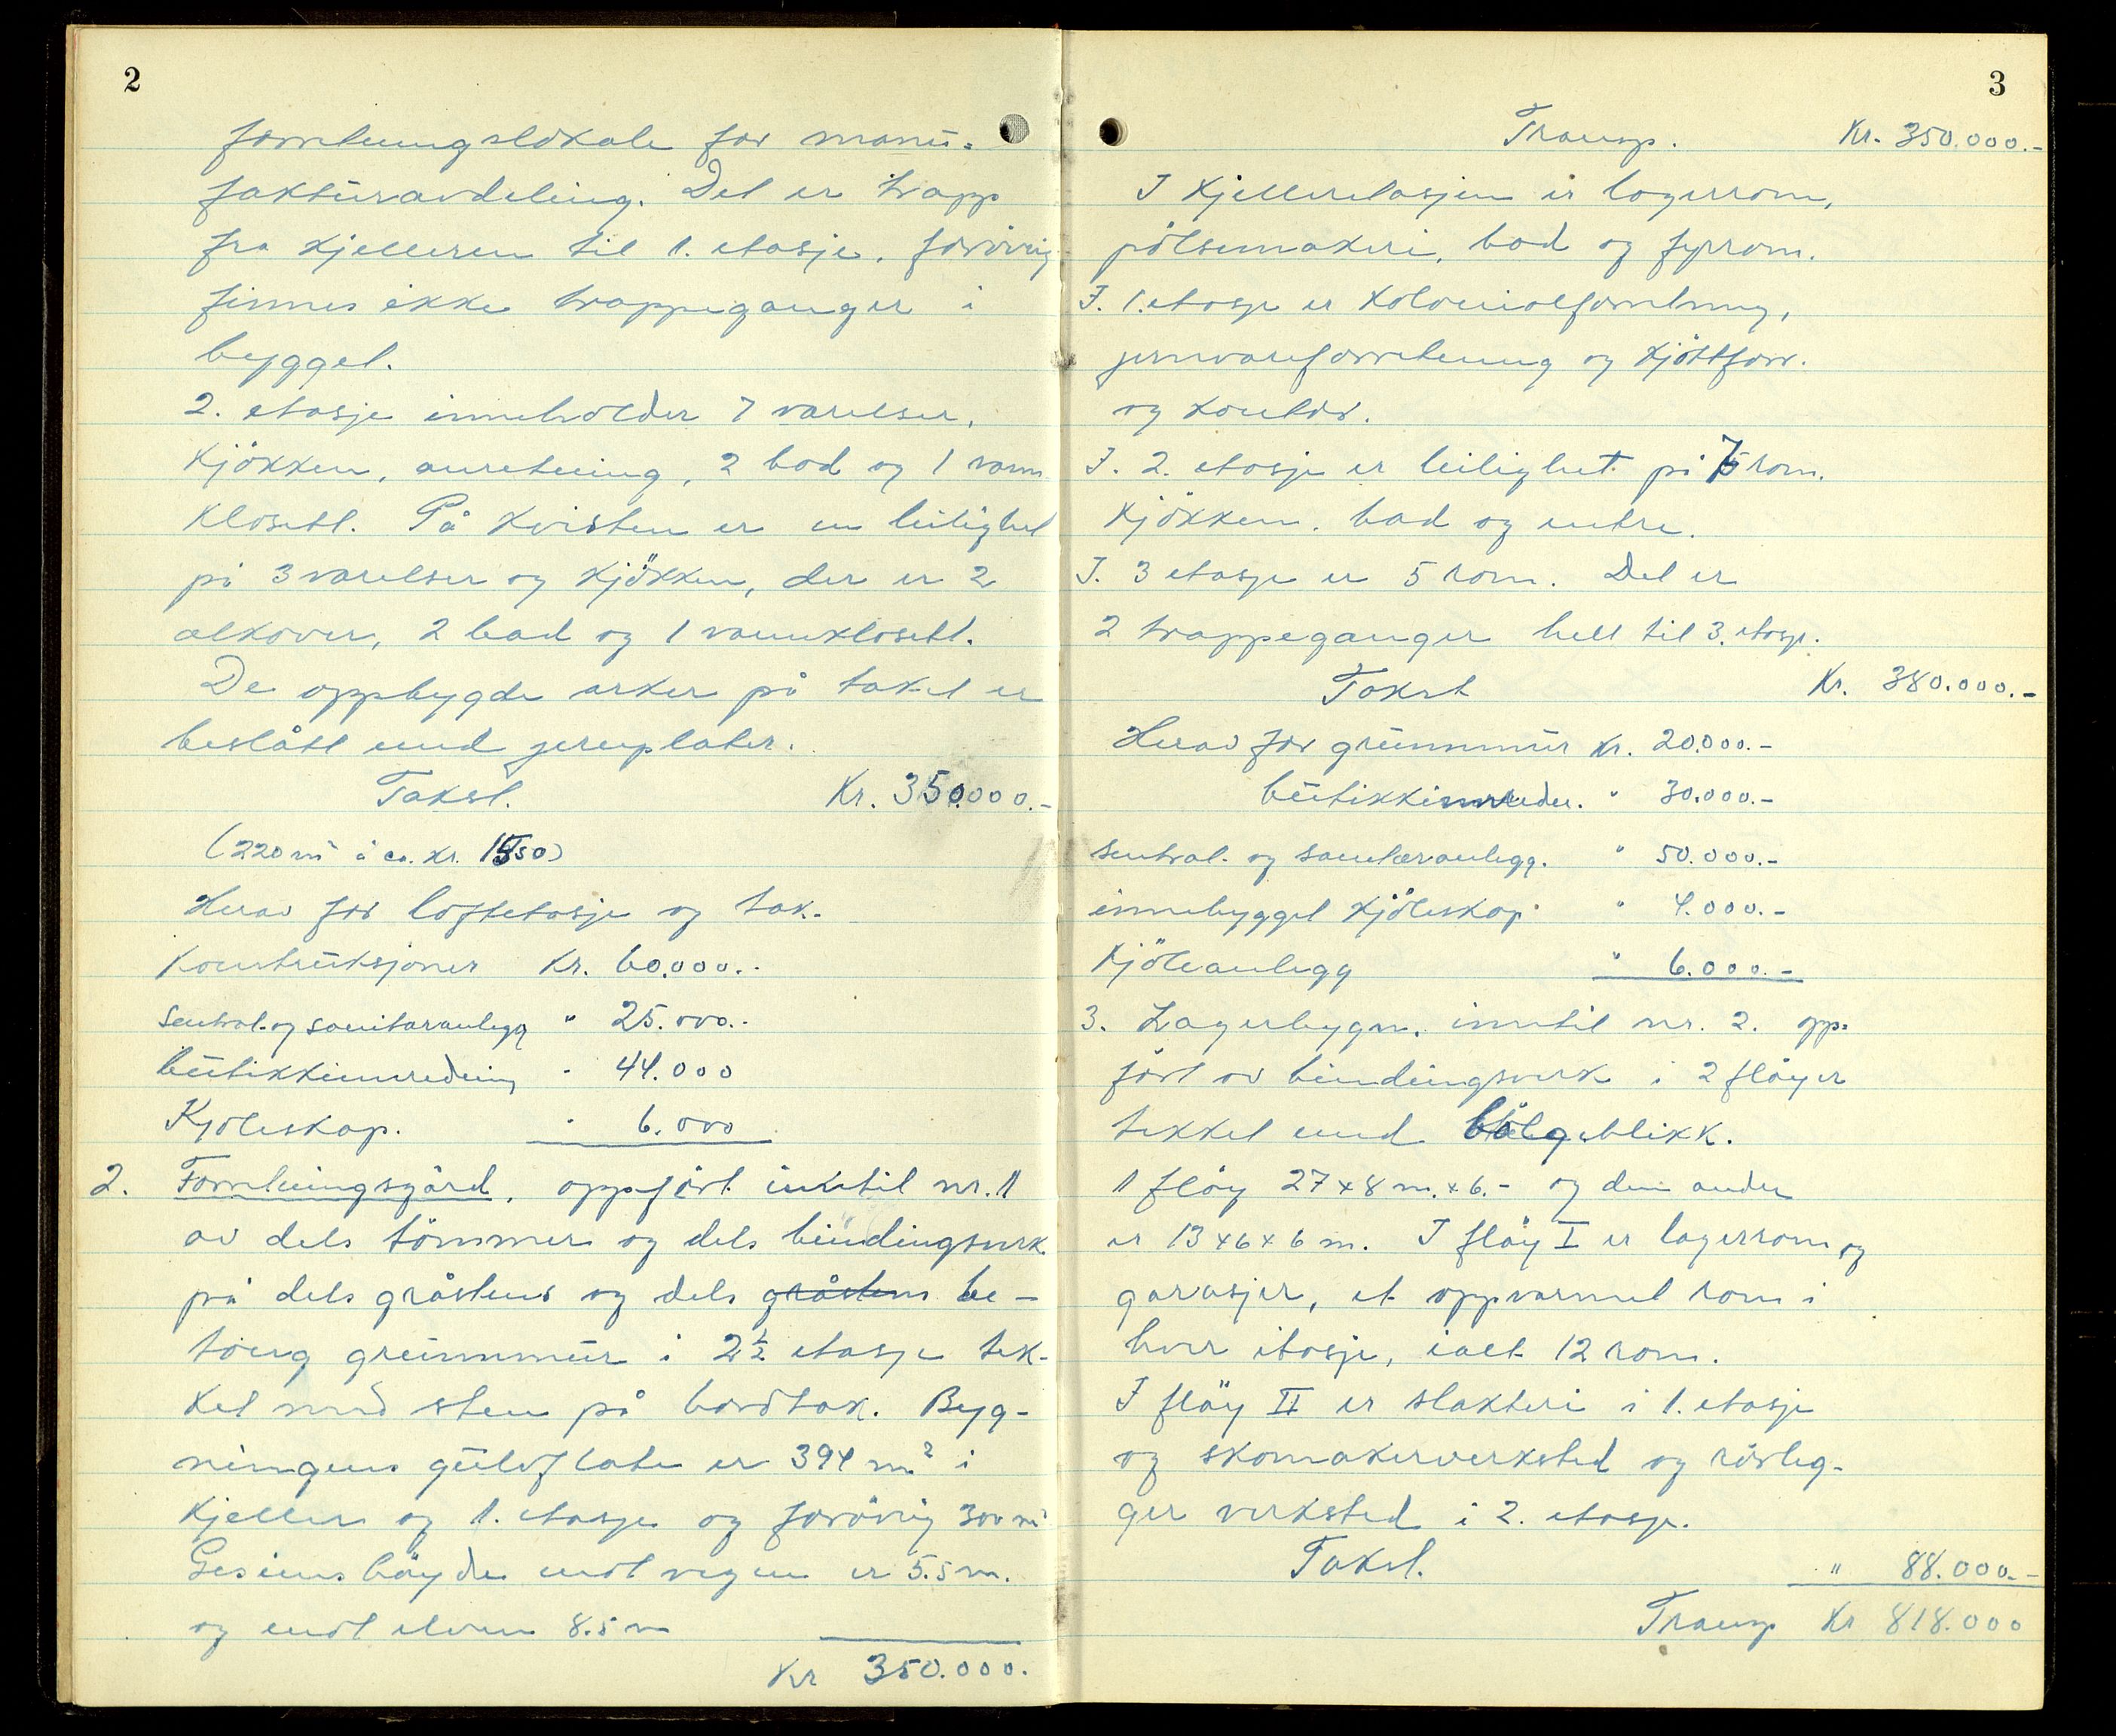 2
forretningslokale for manu-
fakturavdeling. Det er trapp
fra kjelleren til 1. etasje, forövrig
finnes ikke trappeganger i
bygget.
2. etasje inneholder 7 værelser,
kjökken, anretning, 2 bad og 1 vann
klosett. På kvisten er en leilighet
på 3 værelser og kjökken, der er 2
alkover, 2 bad og 1 vannklosett.
De oppbygde arker på taket er
beslått med jernplater.
Takst. Kr. 350.000.-
(220 m² à ca. kr. 1550)
Herav for loftetasje og tak-
konstruksjoner Kr. 60.000.-
sentral- og sanitæranlegg " 25.000.-
butikkinnredning " 44.000
Kjöleskap. " 6.000
2. Forretningsgård, oppfört inntil nr. 1
av dels tömmer og dels bindingsverk
på dels gråstens og dels gråstens be-
tong grunnmur i 2½ etasje tek-
ket med sten på bordtak. Byg-
ningens gulvflate er 394 m² i
kjeller og 1. etasje og forövrig 300 m²
Gesims höyde mot vegen er 5.5 m.
og mot elven 8.5 m
Kr 350.000.
3
Transp. Kr. 350.000.-
I kjelleretasjen er lagerrom,
pölsemakeri, bad og fyrrom.
I. 1. etasje er kolonialforretning,
jernvareforretning og kjöttforr.
og kontor.
I. 2. etasje er leilighet på 7 rom.
kjökken, bad og entre.
I. 3 etasje er 5 rom. Det er
2 trappeganger helt til 3. etasje.
Takst Kr. 380.000.-
Herav for grunnmur Kr. 20.000.-
butikkinnreder. " 30.000.-
sentral- og sanitæranlegg. " 50.000.-
innebygget kjöleskap " 4.000.-
Kjöleanlegg " 6.000.-
3. Lagerbygn. inntil nr. 2. opp-
fört av bindingsverk i 2 flöyer
tekket med bölgeblikk.
1 flöy 27 x 8 m. x 6.- og den anden
er 13 x 6 x 6 m. I flöy I er lagerrom og
garasjer, et oppvarmet rom i
hver etasje, ialt 12 rom.
I flöy II er slakteri i 1. etasje
og skomakerverksted og rörleg-
ger verksted i 2. etasje.
Takst. " 88.000.-
Transp Kr 818.000